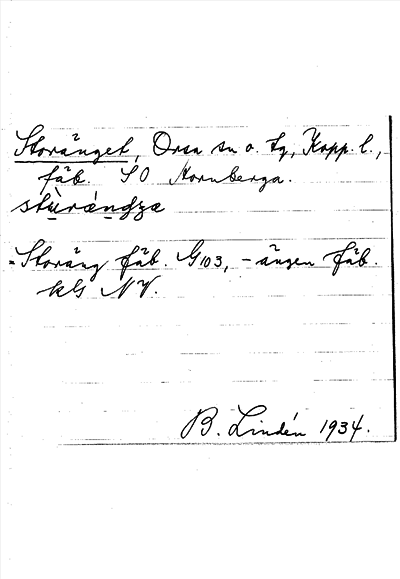 Storänget, Orsa sn o. tg, Kopp. l.,
fäb. SO Hornberga.
stùrǽndʒæ
= Storäng fäb. G103, - ängen fäb.
kbl NV.
B. Lindén 1934.